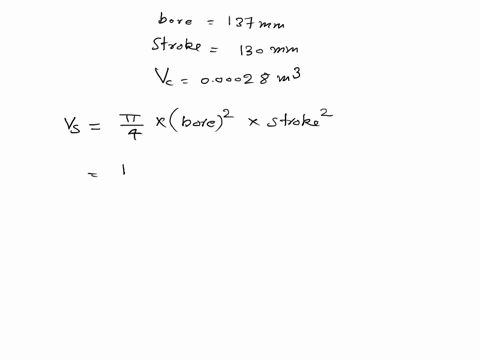 bore = 137 mm
Stroke = 130 mm
Vc = 0.00028 m³
Vs = π/4 × (bore)² × stroke²
= 1